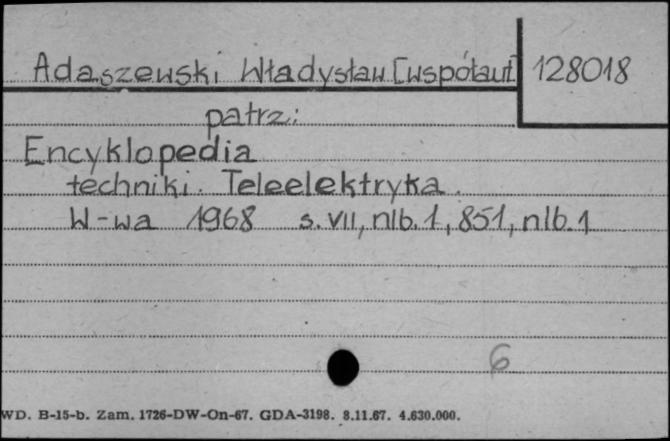 Adaszewski Władysław [współaut] 128018
patrz:
Encyklopedia
techniki. Teleelektryka.
W-wa 1968 s. VII, nlb. 1, 851, nlb. 1
6
WD. B-15-b. Zam. 1726-DW-On-67. GDA-3198. 8.11.67. 4.630.000.